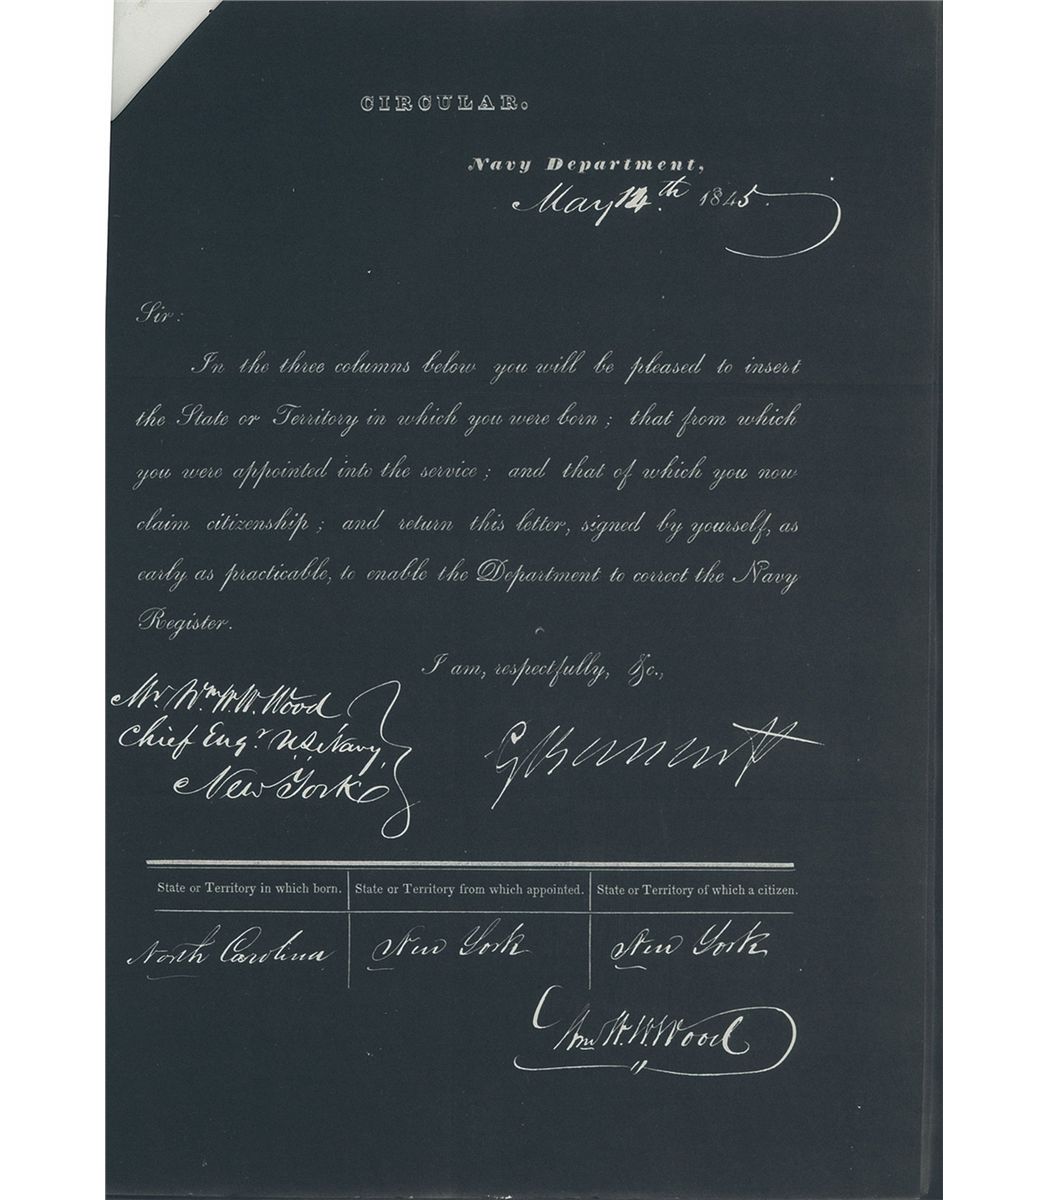 CIRCULAR.
Navy Department,
May 14th 1845.
Sir:
In the three columns below you will be pleased to insert
the State or Territory in which you were born; that from which
you were appointed into the service; and that of which you now
claim citizenship; and return this letter, signed by yourself, as
early as practicable, to enable the Department to correct the Navy
Register.
I am, respectfully, &c.,
Mr. Wm. W. W. Wood
Chief Engr. U.S. Navy,
New York
State or Territory in which born. State or Territory from which appointed. State or Territory of which a citizen.
North Carolina New York New York
Wm. W. W. Wood